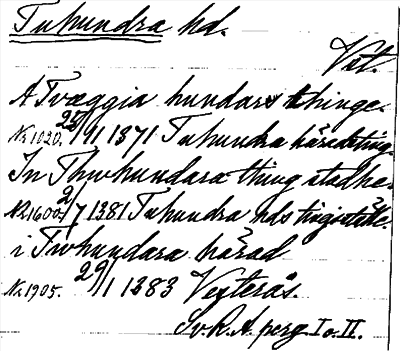 Tuhundra hd.
Vst.
A Tvæggia hundars thinge.
Nr 1020. 25/1 1371 Tuhundra häradsting.
In Thwhundara thing stadha.
Nr 1600. 2/7 1381 Tuhundra hds tingställe.
i Twhundara härad
Nr. 1905. 29/1 1383 Vesterås.
Sv. R. A. perg. I o. II.